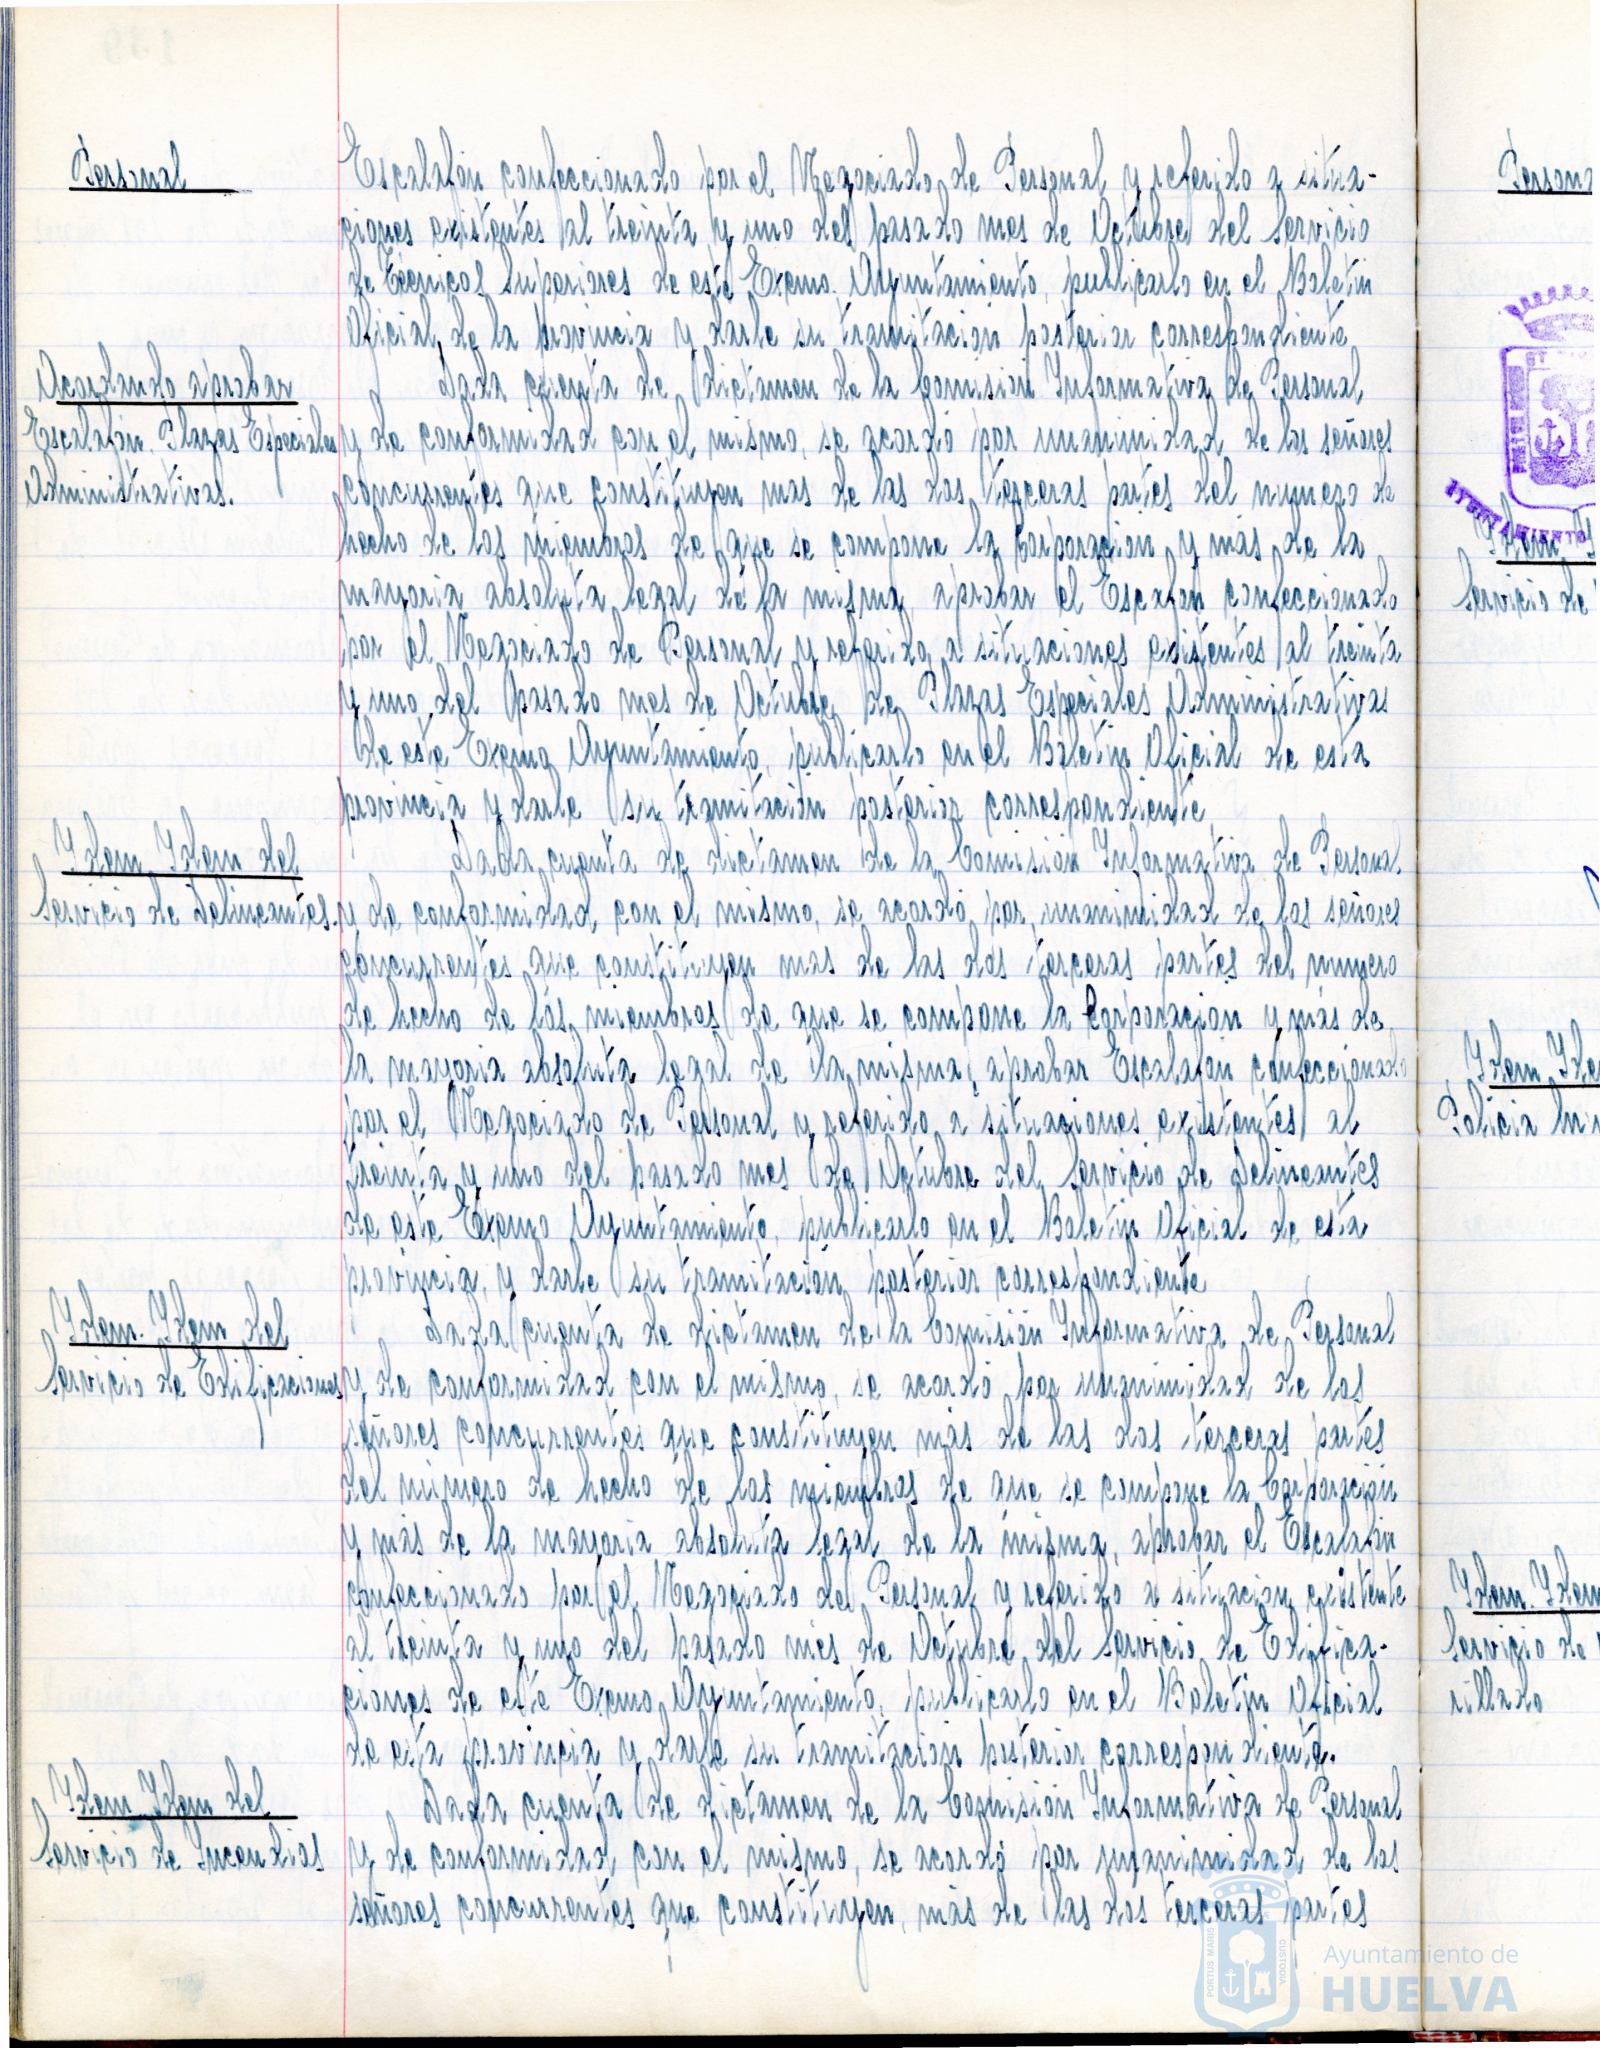 Personal
Escalafón confeccionado por el Negociado de Personal y referido a situa-
ciones existentes al treinta y uno del pasado mes de Octubre del Servicio
de Técnicos Superiores de este Excmo. Ayuntamiento, publicarlo en el Boletin
Oficial de la provincia y darle su tramitación posterior correspondiente
Acordando aprobar
Escalafón Plazas Especiales
Administrativas.
Dada cuenta de dictamen de la Comisión Informativa de Personal
y de conformidad con el mismo, se acordó por unanimidad de los señores
concurrentes que constituyen mas de las dos terceras partes del numero de
hecho de los miembros de que se compone la Corporación y más de la
mayoria absoluta legal de la misma, aprobar el Escafon confeccionado
por el Negociado de Personal y referido a situaciones existentes al treinta
y uno del pasado mes de Octubre de Plazas Especiales Administrativas
de este Excmo Ayuntamiento, publicarlo en el Boletin Oficial de esta
provincia y darle su tramitación posterior correspondiente.
Idem Idem del
Servicio de Delineantes.
Dada cuenta de dictamen de la Comisión Informativa de Personal
y de conformidad con el mismo, se acordó por unanimidad de los señores
concurrentes que constituyen mas de las dos terceras partes del numero
de hecho de los miembros de que se compone la Corporación y más de
la mayoria absoluta legal de la misma, aprobar Escalafón confeccionado
por el Negociado de Personal y referido a situaciones existentes al
treinta y uno del pasado mes de Octubre del Servicio de Delineantes
de este Excmo Ayuntamiento, publicarlo en el Boletin Oficial de esta
provincia, y darle su tramitación posterior correspondiente
Idem. Idem del
Servicio de Edificaciones
Dada cuenta de dictamen de la Comisión Informativa de Personal
y de conformidad con el mismo, se acordó por unanimidad de los
señores concurrentes que constituyen más de las dos terceras partes
del número de hecho de los miembros de que se compone la Corporación
y más de la mayoria absoluta legal de la misma, aprobar el Escalafón
confeccionado por el Negociado de Personal y referido a situación existente
al treinta y uno del pasado mes de Octubre del Servicio de Edifica-
ciones de este Excmo Ayuntamiento, publicarlo en el Boletin Oficial
de esta provincia y darle su tramitación posterior correspondiente.
Idem Idem del
Servicio de Incendios
Dada cuenta de dictamen de la Comisión Informativa de Personal
y de conformidad con el mismo, se acordó por unanimidad de los
señores concurrentes que constituyen, más de las dos terceras partes
Persona
AYUNTAMIENTO
Servicio de
Idem Ide
Policia
Idem. Idem
Servicio de
sillado
PORTUS MARIS
CUSTODIA
Ayuntamiento de
HUELVA